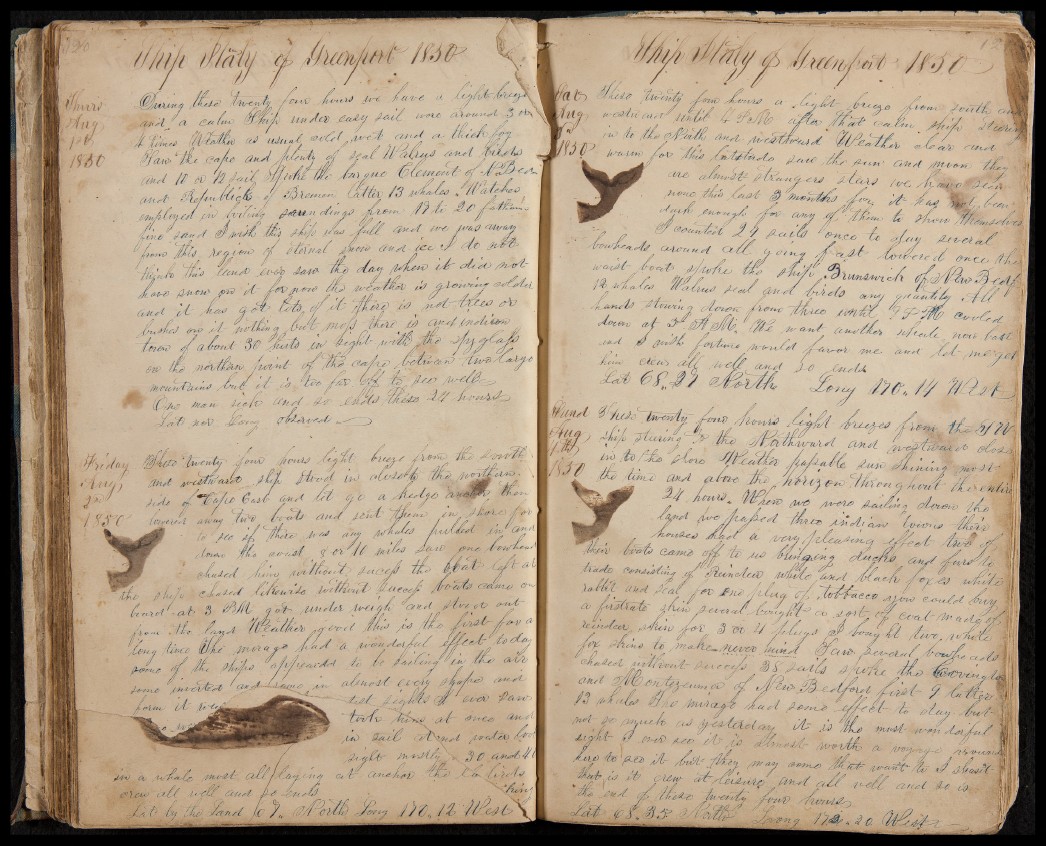 120
Ship Italy of Greenport 1850
Thurs
Aug
1st
1850
During these twenty four hours we have a light breeze
and a calm Ship under easy sail wore around 3 or
4 times Weather as usual cold wet and a thick fog
Saw the cape and plenty of seal Walrus and birds
and 10 or 12 sail Spoke the barque Clement of N Bed
and Republick of Bremen latter 13 whales Watches
employed in boiling soundings from 18 to 20 fathoms
fine sand I wish this ship was full and we was away
from this region of eternal snow and ice I do not
think this land ever saw the day when it did not
have snow on it for now the weather is growing colder
and it has got lots of it there is not trees or
bushes on it nothing but moss there is and indian
town of about 30 huts in sight with the spyglass
on the northern point of the cape between two large
mountains but it is too far off to see well
One man sick and so ends these 24 hours
Lat nor Long observed
Friday
Aug
2d
1850
These twenty four hours light breeze from the South
and westward ship stood in close to the northern
side of Cape East and let go a kedge anchor then
lowered away two boats and sent them in shore for
to see if there was any whales pulled in and
down the coast 8 or 10 miles saw one bowhead
chased him without success the boat left at
the ship chased likewise without success boats came on
board at 3 PM got under weigh and stood out
from the land Weather good this is the first for a
long time The mirage had a wonderful effect today
some of the ships appeared to be sailing in the air
some inverted and some in almost every shape and
form it were
sights I ever saw
took
at once and
in sail
sight mostly 30 and 40
in a whale
all laying at anchor the
crew all well and so ends
Lat by the land 67. North Long 170.12 West
Ship Italy of Greenport 1850
Sat
Aug
3d
1850
These twenty four hours a light breeze from south and
westward until 6 P.M. after that calm ship steering
in to the North and westward Weather clear and
warm for this latitude saw the sun and moon they
are almost strangers stars we have seen
none this last 3 months for it has not been
dark enough for any of them to show themselves
I counted 29 sails once to day several
bowheads around all going fast lowered once the
waist boat spoke the ship Brunswick of New Bedf
12 whales Walrus seal and birds any quantity All
hands stowing down from three until 7 P.M. cooled
down at 3 A.M. We want another whale now bad
and I wish fortune would favor me and let me get
him crew all well and so ends
Lat 68.27 North Long 170.14 West
Sund
Aug
4th
1850
These twenty four hours light breezes from the SW
ship steering to the Northward and westward close
in to the shore Weather passable sun shining most
the time and above the horizon throughout the entire
24 hours. When we were sailing down the
land we passed three indian towns their
houses had a very pleasing effect two of
their boats came off to us bringing ducks and furs to
trade consisting of Reindeer white and black foxes white
rabbit and seal for one plug of tobbacco you could buy
a firstrate skin several bought a sort of coat made of
reindeer skin for 3 or 4 plugs I bought two white
fox skins to make never mind Saw several bowheads
chased without success 38 sails spoke the Covington
and Montezuma of New Bedford first 9 latter
13 whales The mirage had some effect to day but
not so much as yesterday it is the most wonderful
sight I ever see it is almost worth a voyage round
here to see it but they may come that want to I shant
but is it crew at leisure and all well and so is
the end of these twenty four hours
Lat 68.35 North Long 172.20 West